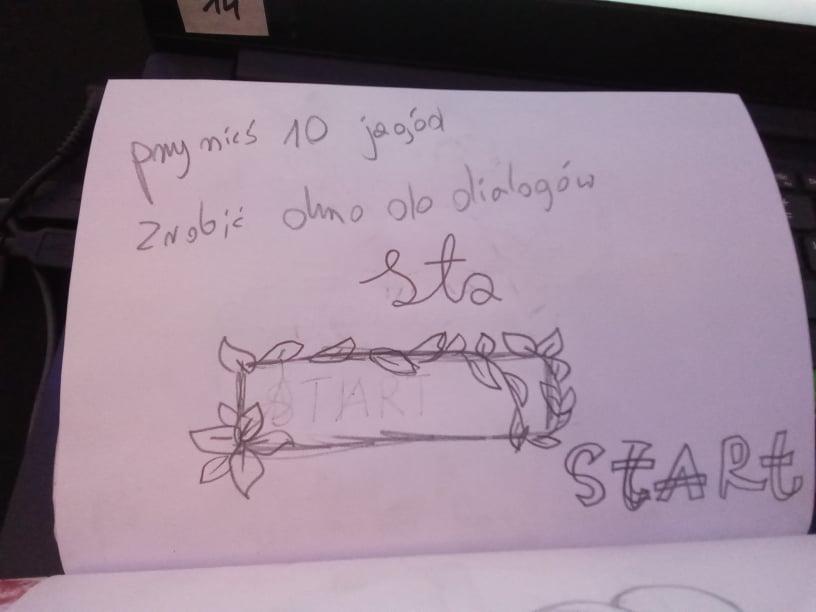 14
przynieś 10 jagód
Zrobić okno do dialogów
sta
START
START